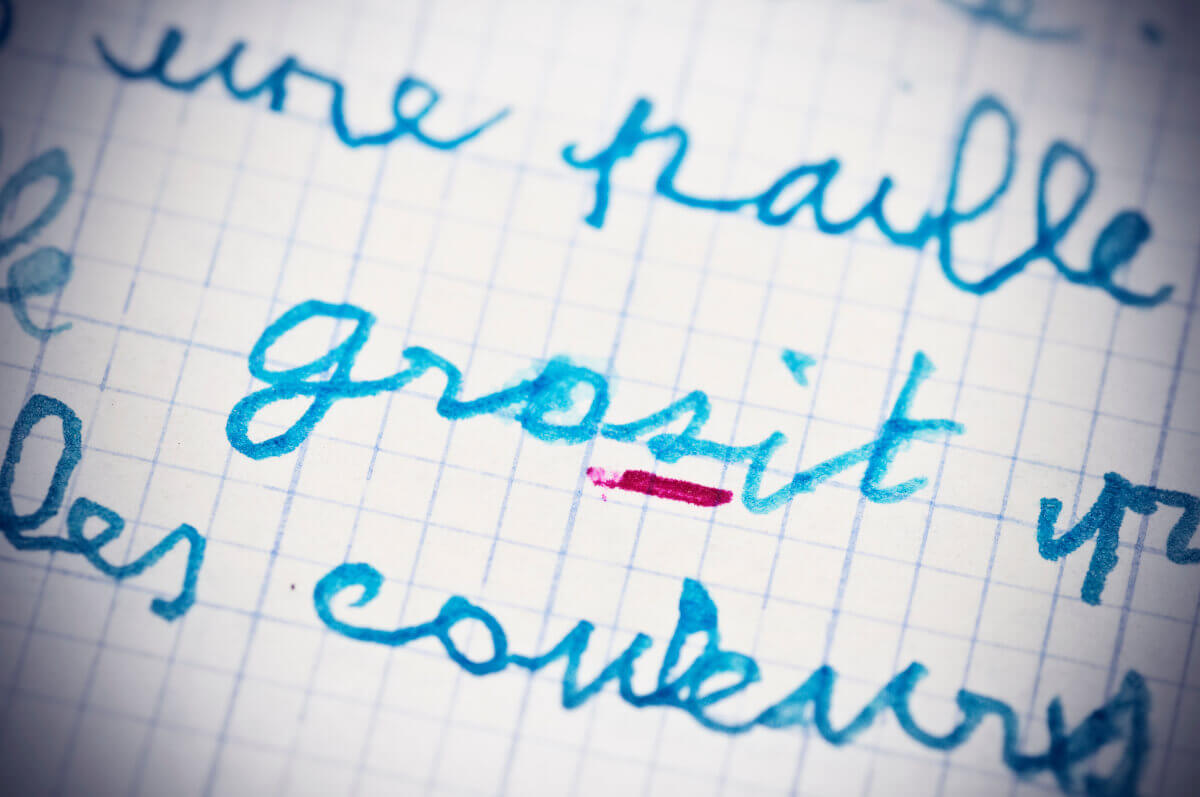 une paille
grosit
les couleurs